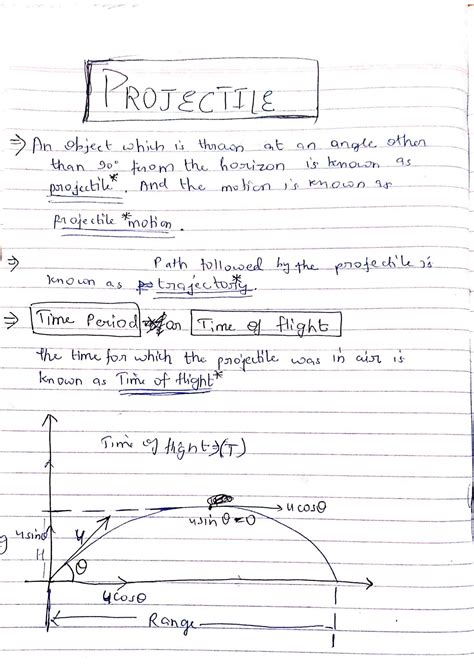 PROJECTILE
⇒ An object which is thrown at an angle other
than 90° from the horizon is known as
projectile*. And the motion is known as
projectile *motion.
⇒ Path followed by the projectile is
known as trajectory*.
⇒ Time Period or Time of flight
the time for which the projectile was in air is
known as Time of flight*
Time of flight ⇒ (T)
u cosθ
u sin θ = 0
usinθ
u
H
θ
u cosθ
Range